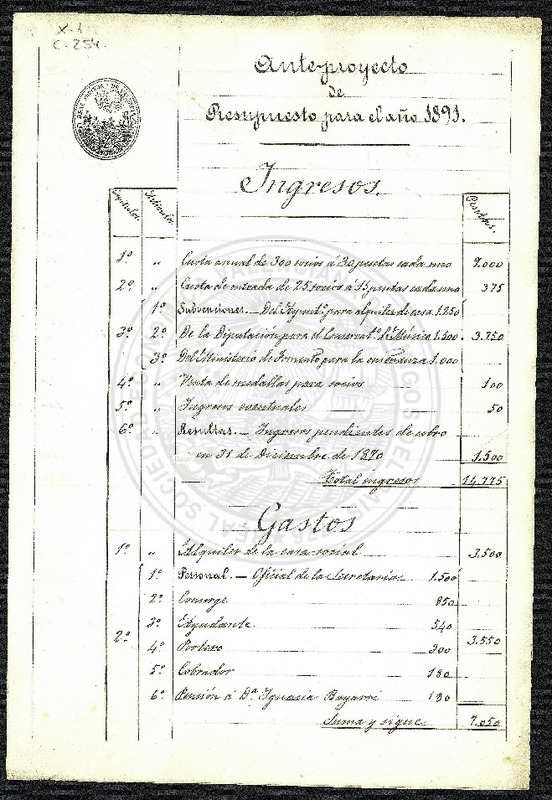 X-1
C-254
Ante-proyecto
de
Presupuesto para el año 1891.
Ingresos.
Capítulos. Artículos. Pesetas.
1º " Cuota anual de 300 socios á 30 pesetas cada uno 9.000
2º " Cuota de entrada de 25 socios á 15 pesetas cada uno 375
1º Subvenciones. — Del Ayuntº para alquiler de casa 1.250
3º 2º De la Diputación para el Conservatº de Música 1.500 3.750
3º Del Ministerio de Fomento para la enseñanza 1.000
4º " Venta de medallas para socios 100
5º " Ingresos eventuales 50
6º " Resultas. — Ingresos pendientes de cobro
en 31 de Diciembre de 1890 1.500
Total ingresos 14.775
Gastos
1º " Alquiler de la casa social 3.500
1º Personal. — Oficial de la Secretaría 1.500
2º Conserge 850
3º Ayudante 540
2º 3.550
4º Portero 300
5º Cobrador 180
6º Pensión á Dª Ignacia Bayarri 180
Suma y sigue 7.050